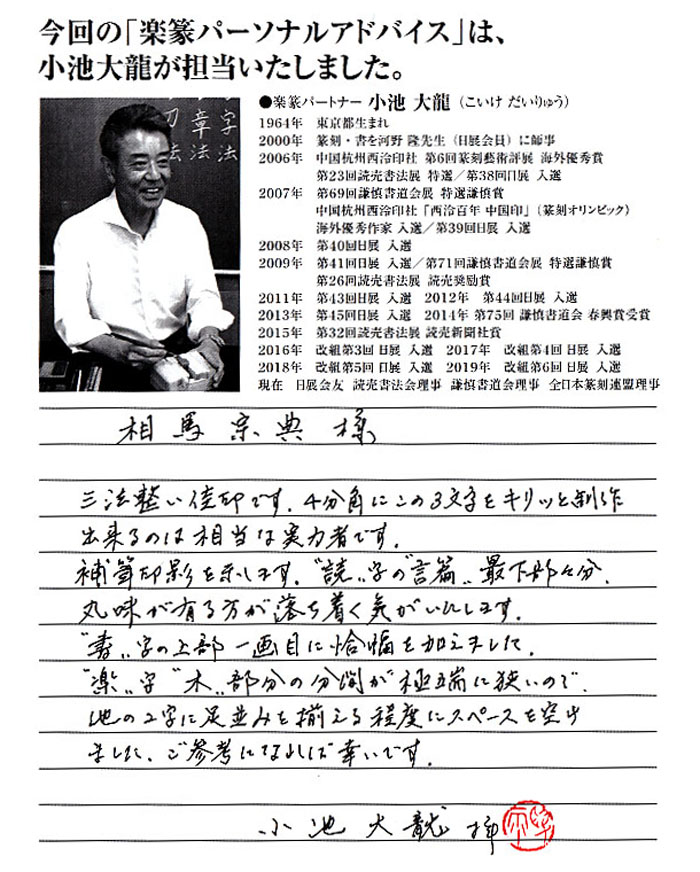 今回の「楽篆パーソナルアドバイス」は、
小池大龍が担当いたしました。
●楽篆パートナー 小池 大龍 (こいけ だいりゅう)
1964年 東京都生まれ
2000年 篆刻・書を河野 隆先生 (日展会員) に師事
2006年 中国杭州西泠印社 第6回篆刻藝術評展 海外優秀賞
第23回読売書法展 特選／第38回日展 入選
2007年 第69回謙慎書道会展 特選謙慎賞
中国杭州西泠印社「西泠百年 中国印」(篆刻オリンピック)
海外優秀作家 入選／第39回日展 入選
2008年 第40回日展 入選
2009年 第41回日展 入選／第71回謙慎書道会展 特選謙慎賞
第26回読売書法展 読売奨励賞
2011年 第43回日展 入選 2012年 第44回日展 入選
2013年 第45回日展 入選 2014年 第75回 謙慎書道会 春興賞受賞
2015年 第32回読売書法展 読売新聞社賞
2016年 改組第3回 日展 入選 2017年 改組第4回 日展 入選
2018年 改組第5回 日展 入選 2019年 改組第6回 日展 入選
現在 日展会友 読売書法会理事 謙慎書道会理事 全日本篆刻連盟理事
字法
章法
刀法
相馬宗典様
三法整い佳印です。4分角にこの3文字をキリッと制作
出来るのは相当な実力者です。
補筆印影を示します。"読"字の"言篇"最下部々分、
丸味が有る方が落ち着く気がいたします。
"書"字の上部一画目に恰幅を加えました。
"楽"字"木"部分の分間が極端に狭いので、
他の2字に足並みを揃える程度にスペースを空け
ました。ご参考になれば幸いです。
小池大龍